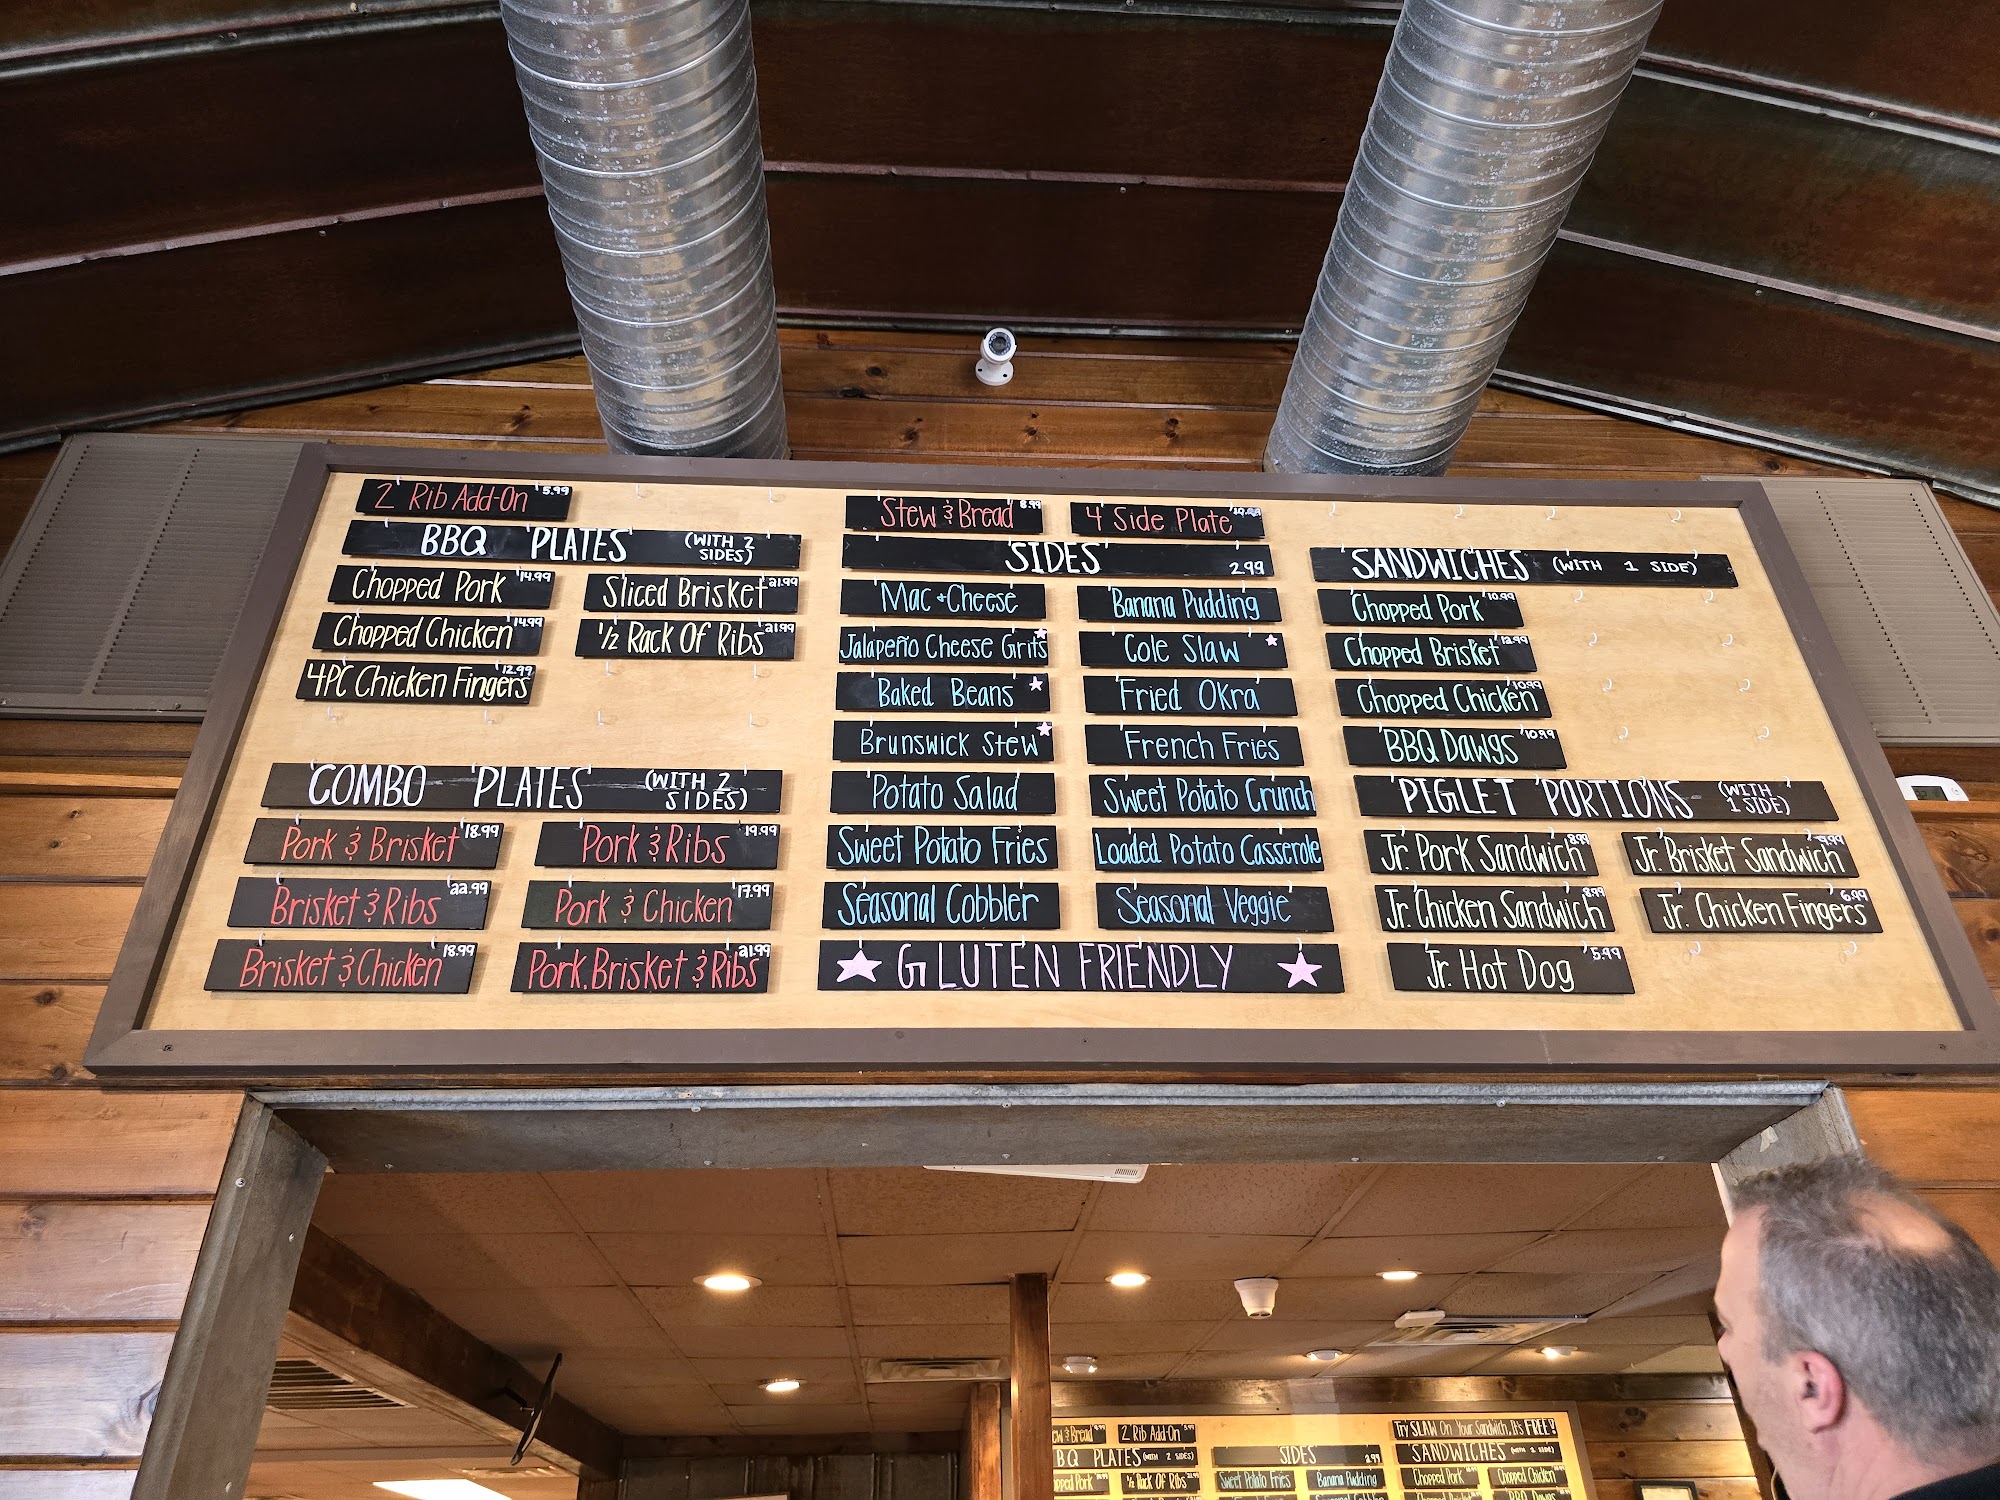 2 Rib Add-On 5.99
BBQ PLATES (WITH 2 SIDES)
Chopped Pork 14.99
Sliced Brisket 21.99
Chopped Chicken 14.99
1/2 Rack Of Ribs 21.99
4PC Chicken Fingers 12.99
COMBO PLATES (WITH 2 SIDES)
Pork & Brisket 18.99
Pork & Ribs 19.99
Brisket & Ribs 22.99
Pork & Chicken 17.99
Brisket & Chicken 18.99
Pork, Brisket & Ribs 21.99
Stew & Bread 8.99
4 Side Plate 10.99
SIDES 2.99
Mac + Cheese
Banana Pudding
Jalapeño Cheese Grits
Cole Slaw
Baked Beans
Fried Okra
Brunswick Stew
French Fries
Potato Salad
Sweet Potato Crunch
Sweet Potato Fries
Loaded Potato Casserole
Seasonal Cobbler
Seasonal Veggie
GLUTEN FRIENDLY
SANDWICHES (WITH 1 SIDE)
Chopped Pork 10.99
Chopped Brisket 12.99
Chopped Chicken 10.99
BBQ Dawgs 10.99
PIGLET PORTIONS (WITH 1 SIDE)
Jr. Pork Sandwich 8.99
Jr. Brisket Sandwich 9.99
Jr. Chicken Sandwich 8.99
Jr. Chicken Fingers 6.99
Jr. Hot Dog 5.99
ew & Bread 8.99
2 Rib Add-On 5.99
Try SLAW On Your Sandwich, It's FREE!
BQ PLATES (WITH 2 SIDES)
SIDES 2.99
SANDWICHES (WITH 1 SIDE)
pped Pork
1/2 Rack Of Ribs
Sweet Potato Fries
Banana Pudding
Chopped Pork
Chopped Chicken
Seasonal Cobbler
Chopped Brisket
BBQ Dawgs